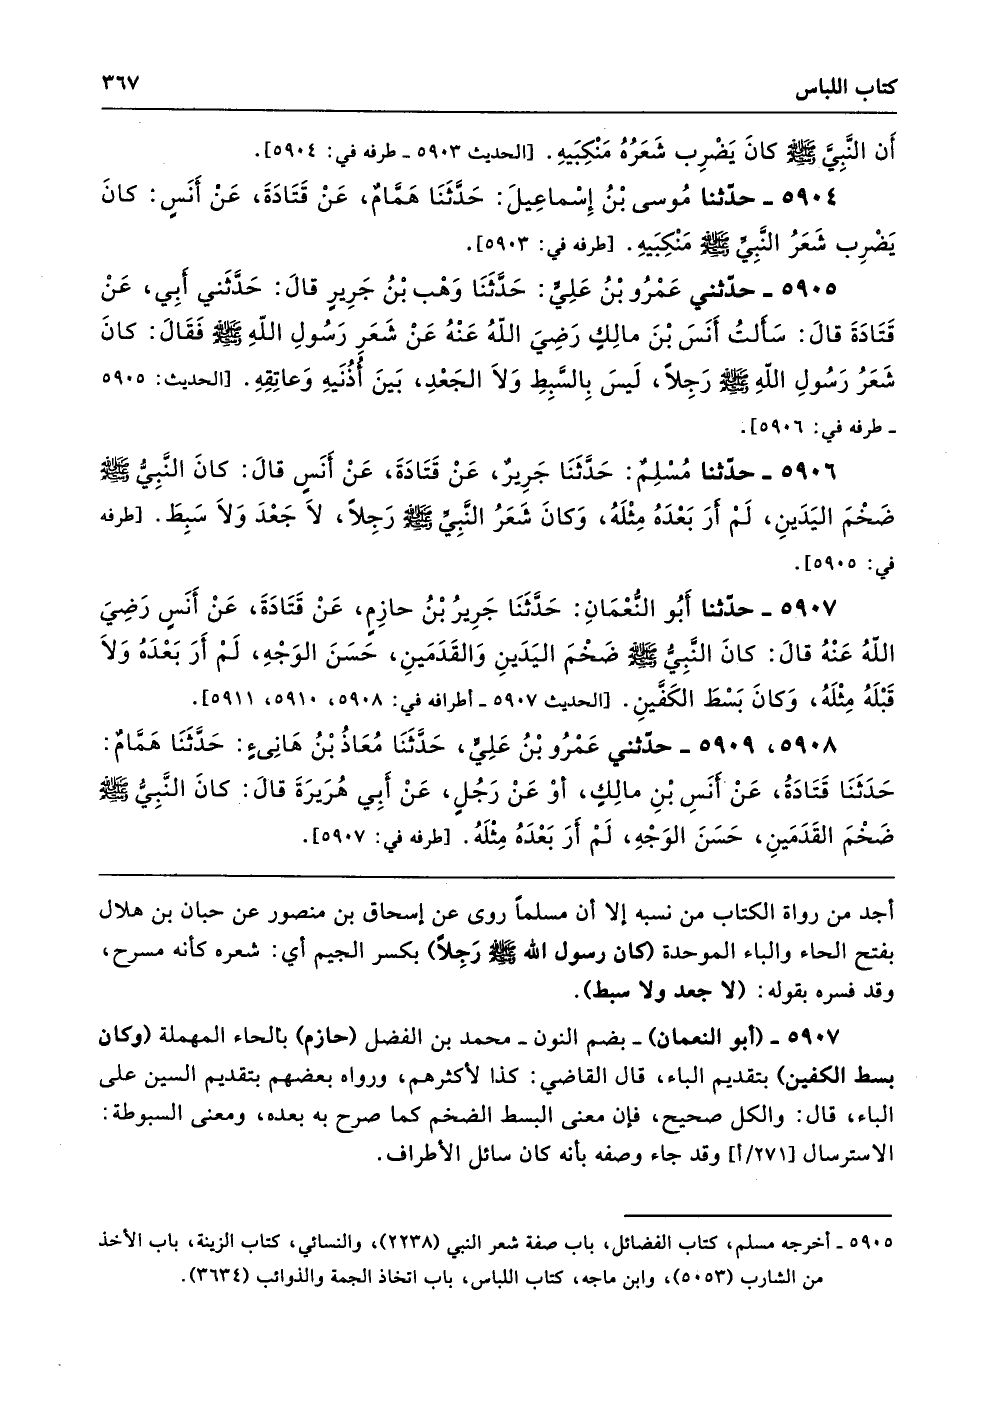 كتاب اللباس ٣٦٧
أَن النَّبِيَّ ﷺ كانَ يَضْرِب شَعَرُهُ مَنْكِبَيهِ. [الحديث ٥٩٠٣ ـ طرفه في: ٥٩٠٤].
٥٩٠٤ ـ حدّثنا مُوسى بْنُ إِسْماعِيلَ: حَدَّثَنَا هَمَّامٌ، عَنْ قَتَادَةَ، عَنْ أَنَسٍ: كانَ
يَضْرِب شَعَرُ النَّبِيِّ ﷺ مَنْكِبَيهِ. [طرفه في: ٥٩٠٣].
٥٩٠٥ ـ حدّثني عَمْرُو بْنُ عَلِيٍّ: حَدَّثَنَا وَهْب بْنُ جَرِيرٍ قالَ: حَدَّثَني أَبِي، عَنْ
قَتَادَةَ قالَ: سَأَلتُ أَنَسَ بْنَ مالِكٍ رَضِيَ اللّهُ عَنْهُ عَنْ شَعَرِ رَسُولِ اللّهِ ﷺ فَقَالَ: كانَ
شَعَرُ رَسُولِ اللّهِ ﷺ رَجِلاً، لَيسَ بِالسَّبِطِ وَلاَ الجَعْدِ، بَينَ أُذُنَيهِ وَعاتِقِهِ. [الحديث: ٥٩٠٥
ـ طرفه في: ٥٩٠٦].
٥٩٠٦ ـ حدّثنا مُسْلِمٌ: حَدَّثَنَا جَرِيرٌ، عَنْ قَتَادَةَ، عَنْ أَنَسٍ قالَ: كانَ النَّبِيُّ ﷺ
ضَخْمَ اليَدَينِ، لَمْ أَرَ بَعْدَهُ مِثْلَهُ، وَكانَ شَعَرُ النَّبِيِّ ﷺ رَجِلاً، لاَ جَعْدَ وَلاَ سَبِطَ. [طرفه
في: ٥٩٠٥].
٥٩٠٧ ـ حدّثنا أَبُو النُّعْمَانِ: حَدَّثَنَا جَرِيرُ بْنُ حازِمٍ، عَنْ قَتَادَةَ، عَنْ أَنَسٍ رَضِيَ
اللّهُ عَنْهُ قالَ: كانَ النَّبِيُّ ﷺ ضَخْمَ اليَدَينِ وَالقَدَمَينِ، حَسَنَ الوَجْهِ، لَمْ أَرَ بَعْدَهُ وَلاَ
قَبْلَهُ مِثْلَهُ، وَكانَ بَسْطَ الكَفَّينِ. [الحديث ٥٩٠٧ ـ أطرافه في: ٥٩٠٨، ٥٩١٠، ٥٩١١].
٥٩٠٨، ٥٩٠٩ ـ حدّثني عَمْرُو بْنُ عَلِيٍّ، حَدَّثَنَا مُعَاذُ بْنُ هَانِىءٍ: حَدَّثَنَا هَمَّامٌ:
حَدَثَنَا قَتَادَةُ، عَنْ أَنَسِ بْنِ مالِكٍ، أَوْ عَنْ رَجُلٍ، عَنْ أَبِي هُرَيرَةَ قالَ: كانَ النَّبِيُّ ﷺ
ضَخْمَ القَدَمَينِ، حَسَنَ الوَجْهِ، لَمْ أَرَ بَعْدَهُ مِثْلَهُ. [طرفه في: ٥٩٠٧].
أجد من رواة الكتاب من نسبه إلا أن مسلماً روى عن إسحاق بن منصور عن حبان بن هلال
بفتح الحاء والباء الموحدة (كان رسول الله ﷺ رَجِلاً) بكسر الجيم أي: شعره كأنه مسرح،
وقد فسره بقوله: (لا جعد ولا سبط).
٥٩٠٧ ـ (أبو النعمان) ـ بضم النون ـ محمد بن الفضل (حازم) بالحاء المهملة (وكان
بسط الكفين) بتقديم الباء، قال القاضي: كذا لأكثرهم، ورواه بعضهم بتقديم السين على
الباء، قال: والكل صحيح، فإن معنى البسط الضخم كما صرح به بعده، ومعنى السبوطة:
الاسترسال [٢٧١/أ] وقد جاء وصفه بأنه كان سائل الأطراف.
٥٩٠٥ ـ أخرجه مسلم، كتاب الفضائل، باب صفة شعر النبي (٢٢٣٨)، والنسائي، كتاب الزينة، باب الأخذ
من الشارب (٥٠٥٣)، وابن ماجه، كتاب اللباس، باب اتخاذ الجمة والذوائب (٣٦٣٤).